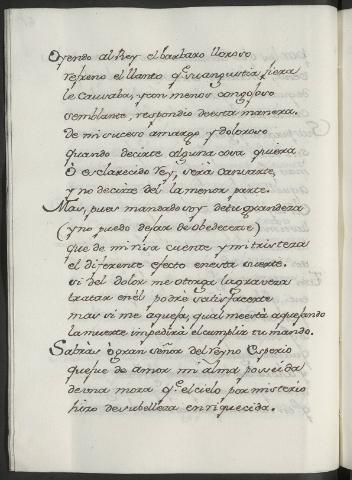 Oyendo al Rey el barbaro lloroso
refreno el llanto q̃ su angustia fiera
le causaba, y con menos congojoso
semblante, respondio de esta manera.
de mi suceso amargo y doloroso
quando decirte alguna cosa quiera
ô esclarecido Rey, será cansarte,
y no decirte del la menor parte.
Mas, pues mandado soy de tu grandeza
(y no puedo dejar de obedecerte)
que de mi risa cuente y mi tristeza
el diferente efecto en esta suerte.
si del dolor me otorga la graveza
tratar en él podré satisfacerte
mas si me aqueja, qual me está aquejando
la muerte impedirá el cumplir tu mando.
Sabrás ô gran señor del Reyno Esperio
que fue de amor mi alma poseida
de una mora q̃ el cielo por misterio
hizo de su belleza enriquecida.